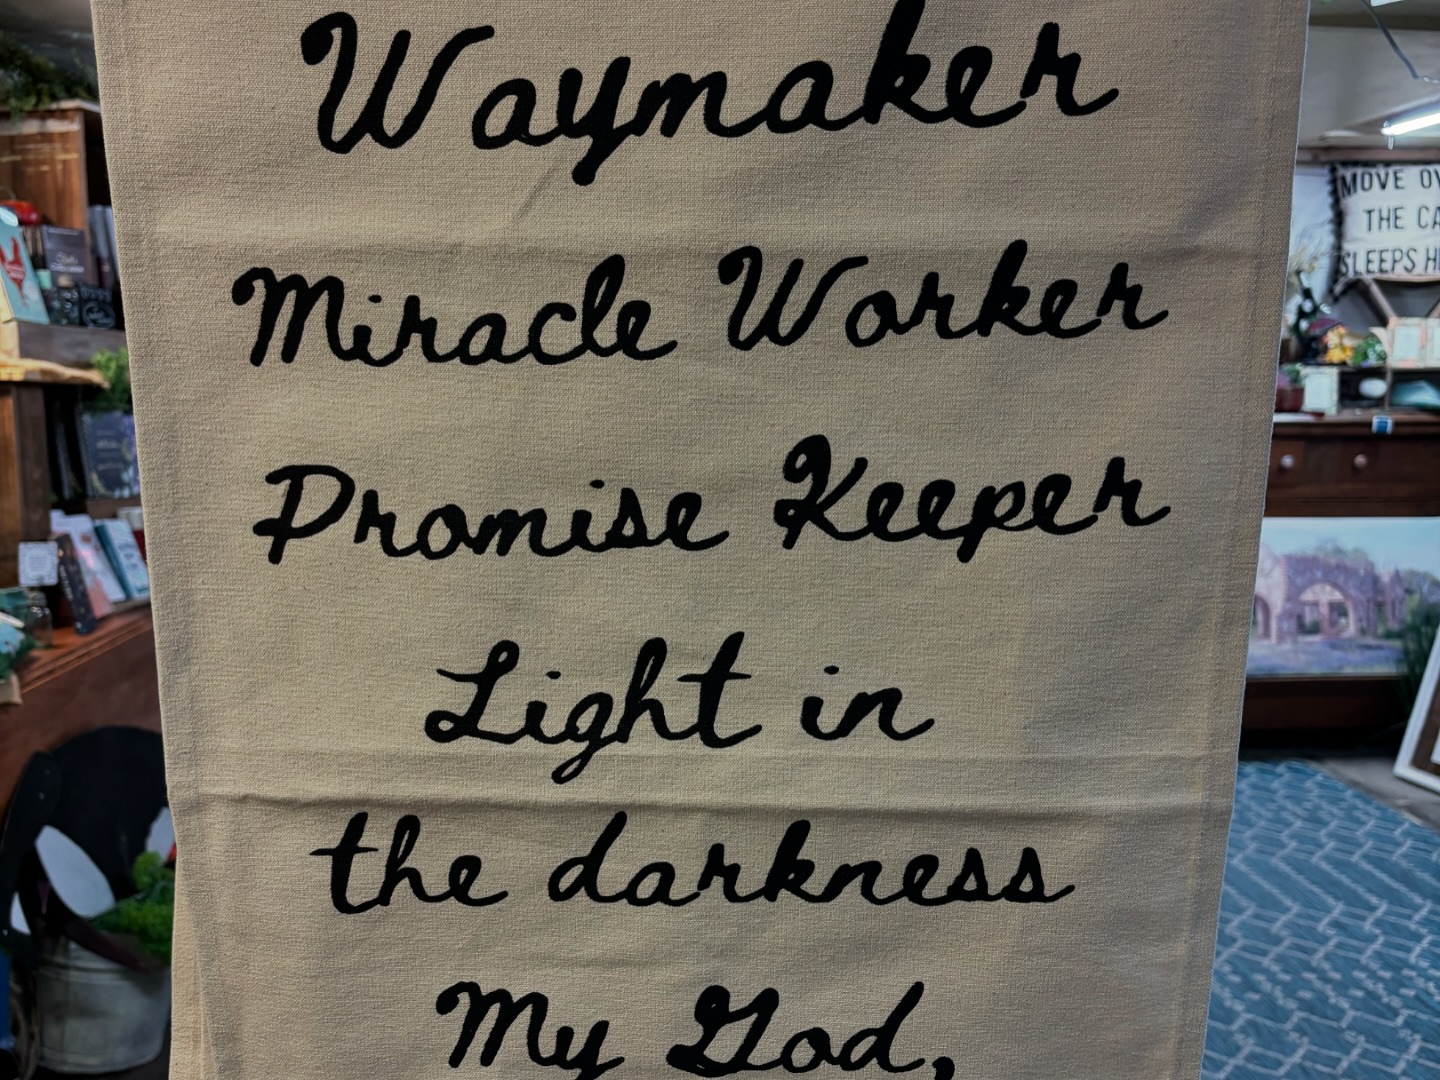 Waymaker
Miracle Worker
Promise Keeper
Light in
the darkness
My God,
MOVE
THE
SLEEPS